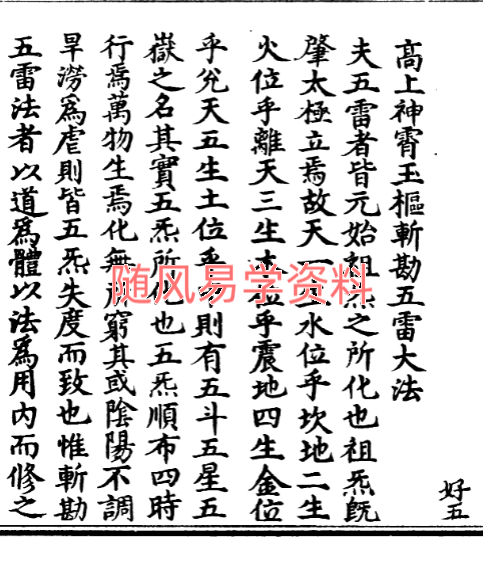 高上神霄玉樞斬勘五雷大法
夫五雷者皆元始祖炁之所化也祖炁既
肇太極立焉故天一生水位乎坎地二生
火位乎離天三生木位乎震地四生金位
乎兊天五生土位乎則有五斗五星五
嶽之名其實五炁所化也五炁順布四時
行焉萬物生焉化無窮其或陰陽不調
旱澇爲虐則皆五炁失度而致也惟斬勘
五雷法者以道爲體以法爲用内而脩之
好五
随风易学资料